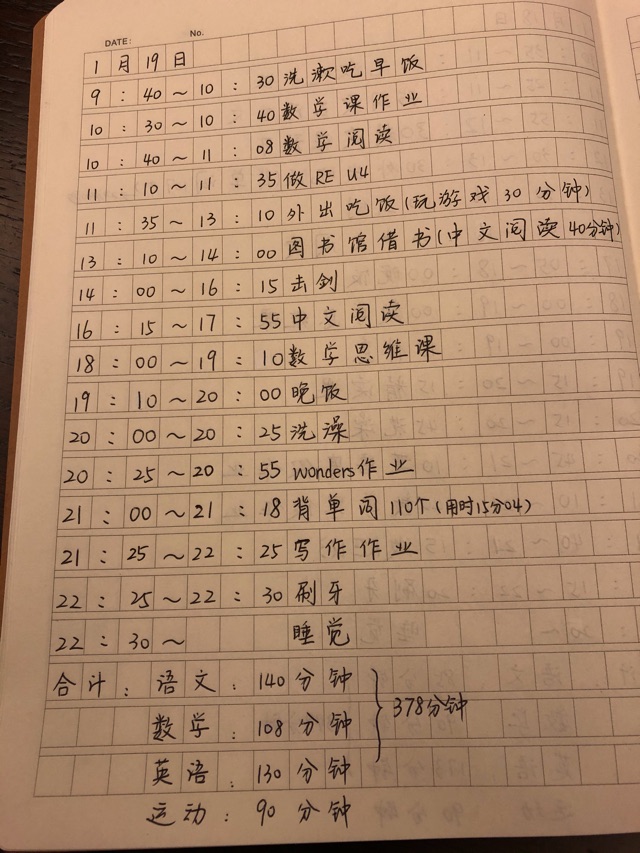 DATE: No.
1月19日
9:40~10:30洗漱吃早饭
10:30~10:40数学课作业
10:40~11:08数学阅读
11:10~11:35做RE U4
11:35~13:10外出吃饭(玩游戏30分钟)
13:10~14:00图书馆借书(中文阅读40分钟)
14:00~16:15击剑
16:15~17:55中文阅读
18:00~19:10数学思维课
19:10~20:00晚饭
20:00~20:25洗澡
20:25~20:55wonders作业
21:00~21:18背单词110个(用时15分04)
21:25~22:25写作作业
22:25~22:30刷牙
22:30~ 睡觉
合计:语文:140分钟
数学:108分钟 378分钟
英语:130分钟
运动:90分钟